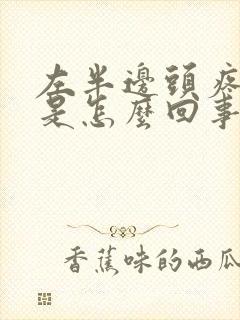 左半邊頭疼
是怎麼回事
香蕉味的西瓜